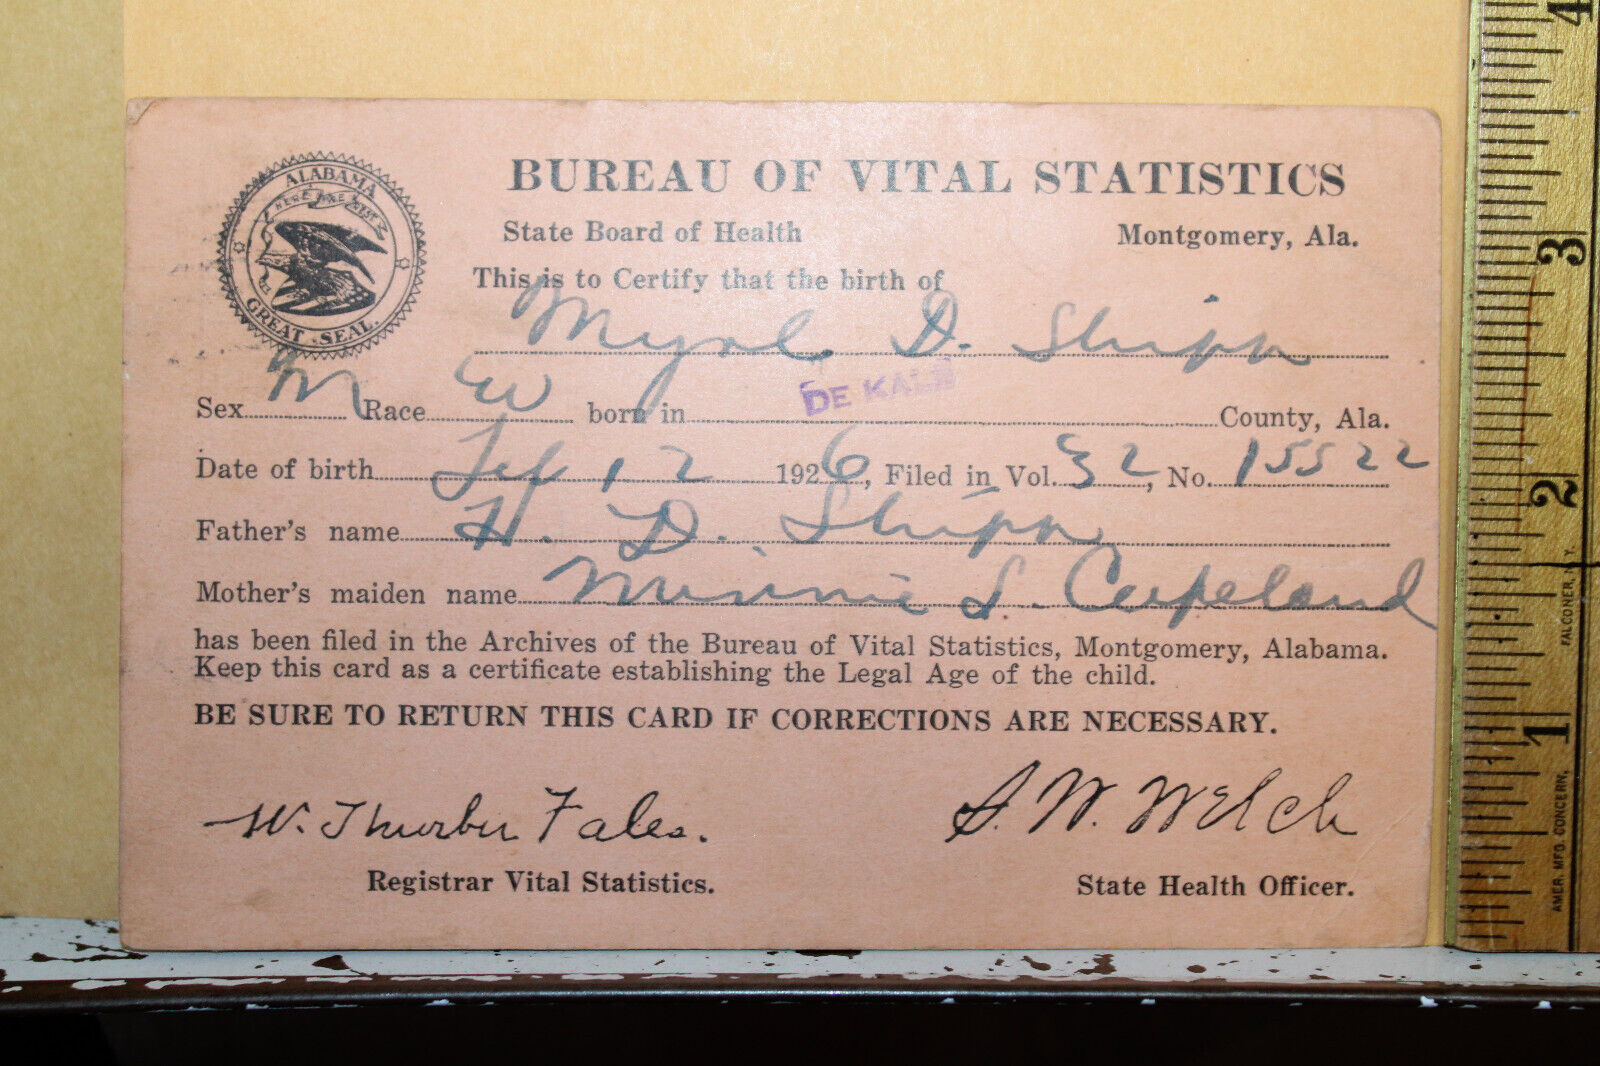 ALABAMA
HERE WE REST
GREAT SEAL.
BUREAU OF VITAL STATISTICS
State Board of Health Montgomery, Ala.
This is to Certify that the birth of
D. Shipp
Sex M Race W born in DE KALB County, Ala.
Date of birth 12 1926, Filed in Vol. 32, No. 15522
Father's name H. D. Shipp
Mother's maiden name Minnie S. Copeland
has been filed in the Archives of the Bureau of Vital Statistics, Montgomery, Alabama.
Keep this card as a certificate establishing the Legal Age of the child.
BE SURE TO RETURN THIS CARD IF CORRECTIONS ARE NECESSARY.
W. Thurber Fales. S. W. Welch
Registrar Vital Statistics. State Health Officer.
4
3
2
1
FALCONER, N.Y.
AMER. MFG. CONCERN,